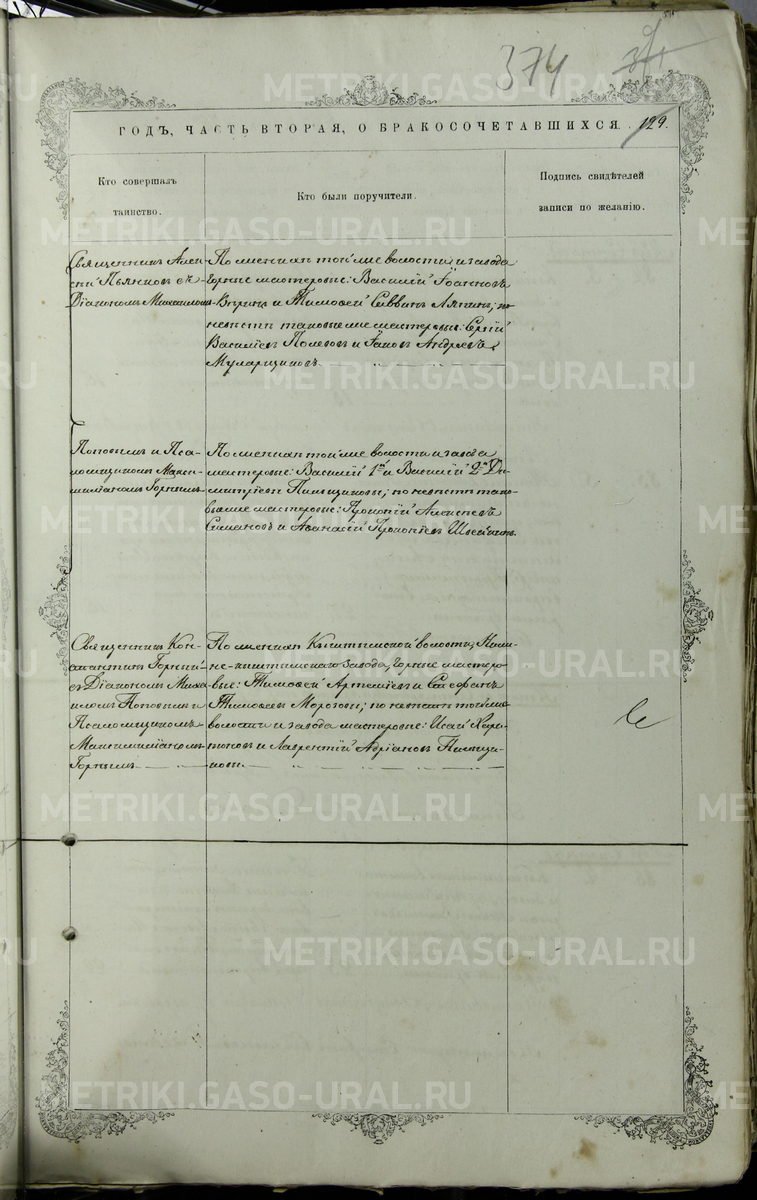 374
ГОДЪ, ЧАСТЬ ВТОРАЯ, О БРАКОСОЧЕТАВШИХСЯ. 129.
Кто совершалъ
таинство.
Кто были поручители.
Подпись свидѣтелей
записи по желанію.
Священникъ Алек-
сѣй Пьянковъ съ
Діакономъ Михаиломъ
По женихѣ той же волости и завода
горные мастеровые: Василій Іоанновъ
и Тимоѳей Саввинъ Ляпинъ; по
невѣстѣ таковые же мастеровые: Сергій
Василіевъ Полевовъ и Іаковъ Андреевъ
Поповымъ и Пса-
ломщикомъ Макси-
миліаномъ Горнымъ
По женихѣ той же волости и завода
мастеровые: Василій 1й и Василій 2й Ди-
митріевы Пильщиковы; по невѣстѣ тако-
вые же мастеровые: Прокопій Алексѣевъ
Симановъ и Аѳанасій Прокопіевъ Швейкинъ.
Священникъ Кон-
стантинъ Горный
съ Діакономъ Миха-
иломъ Поповымъ и
Псаломщикомъ
Максимиліаномъ
Горнымъ
По женихѣ Кыштымской волости, Ниж-
не-Кыштымскаго завода, горные мастеро-
вые: Тимоѳей Артеміевъ и Стефанъ
Тимоѳеевъ Морозовы; по невѣстѣ той же
волости и завода мастеровые: Исай Хари-
тоновъ и Лаврентій Адріановъ Пильщи-
ковы
METRIKI.GASO-URAL.RU